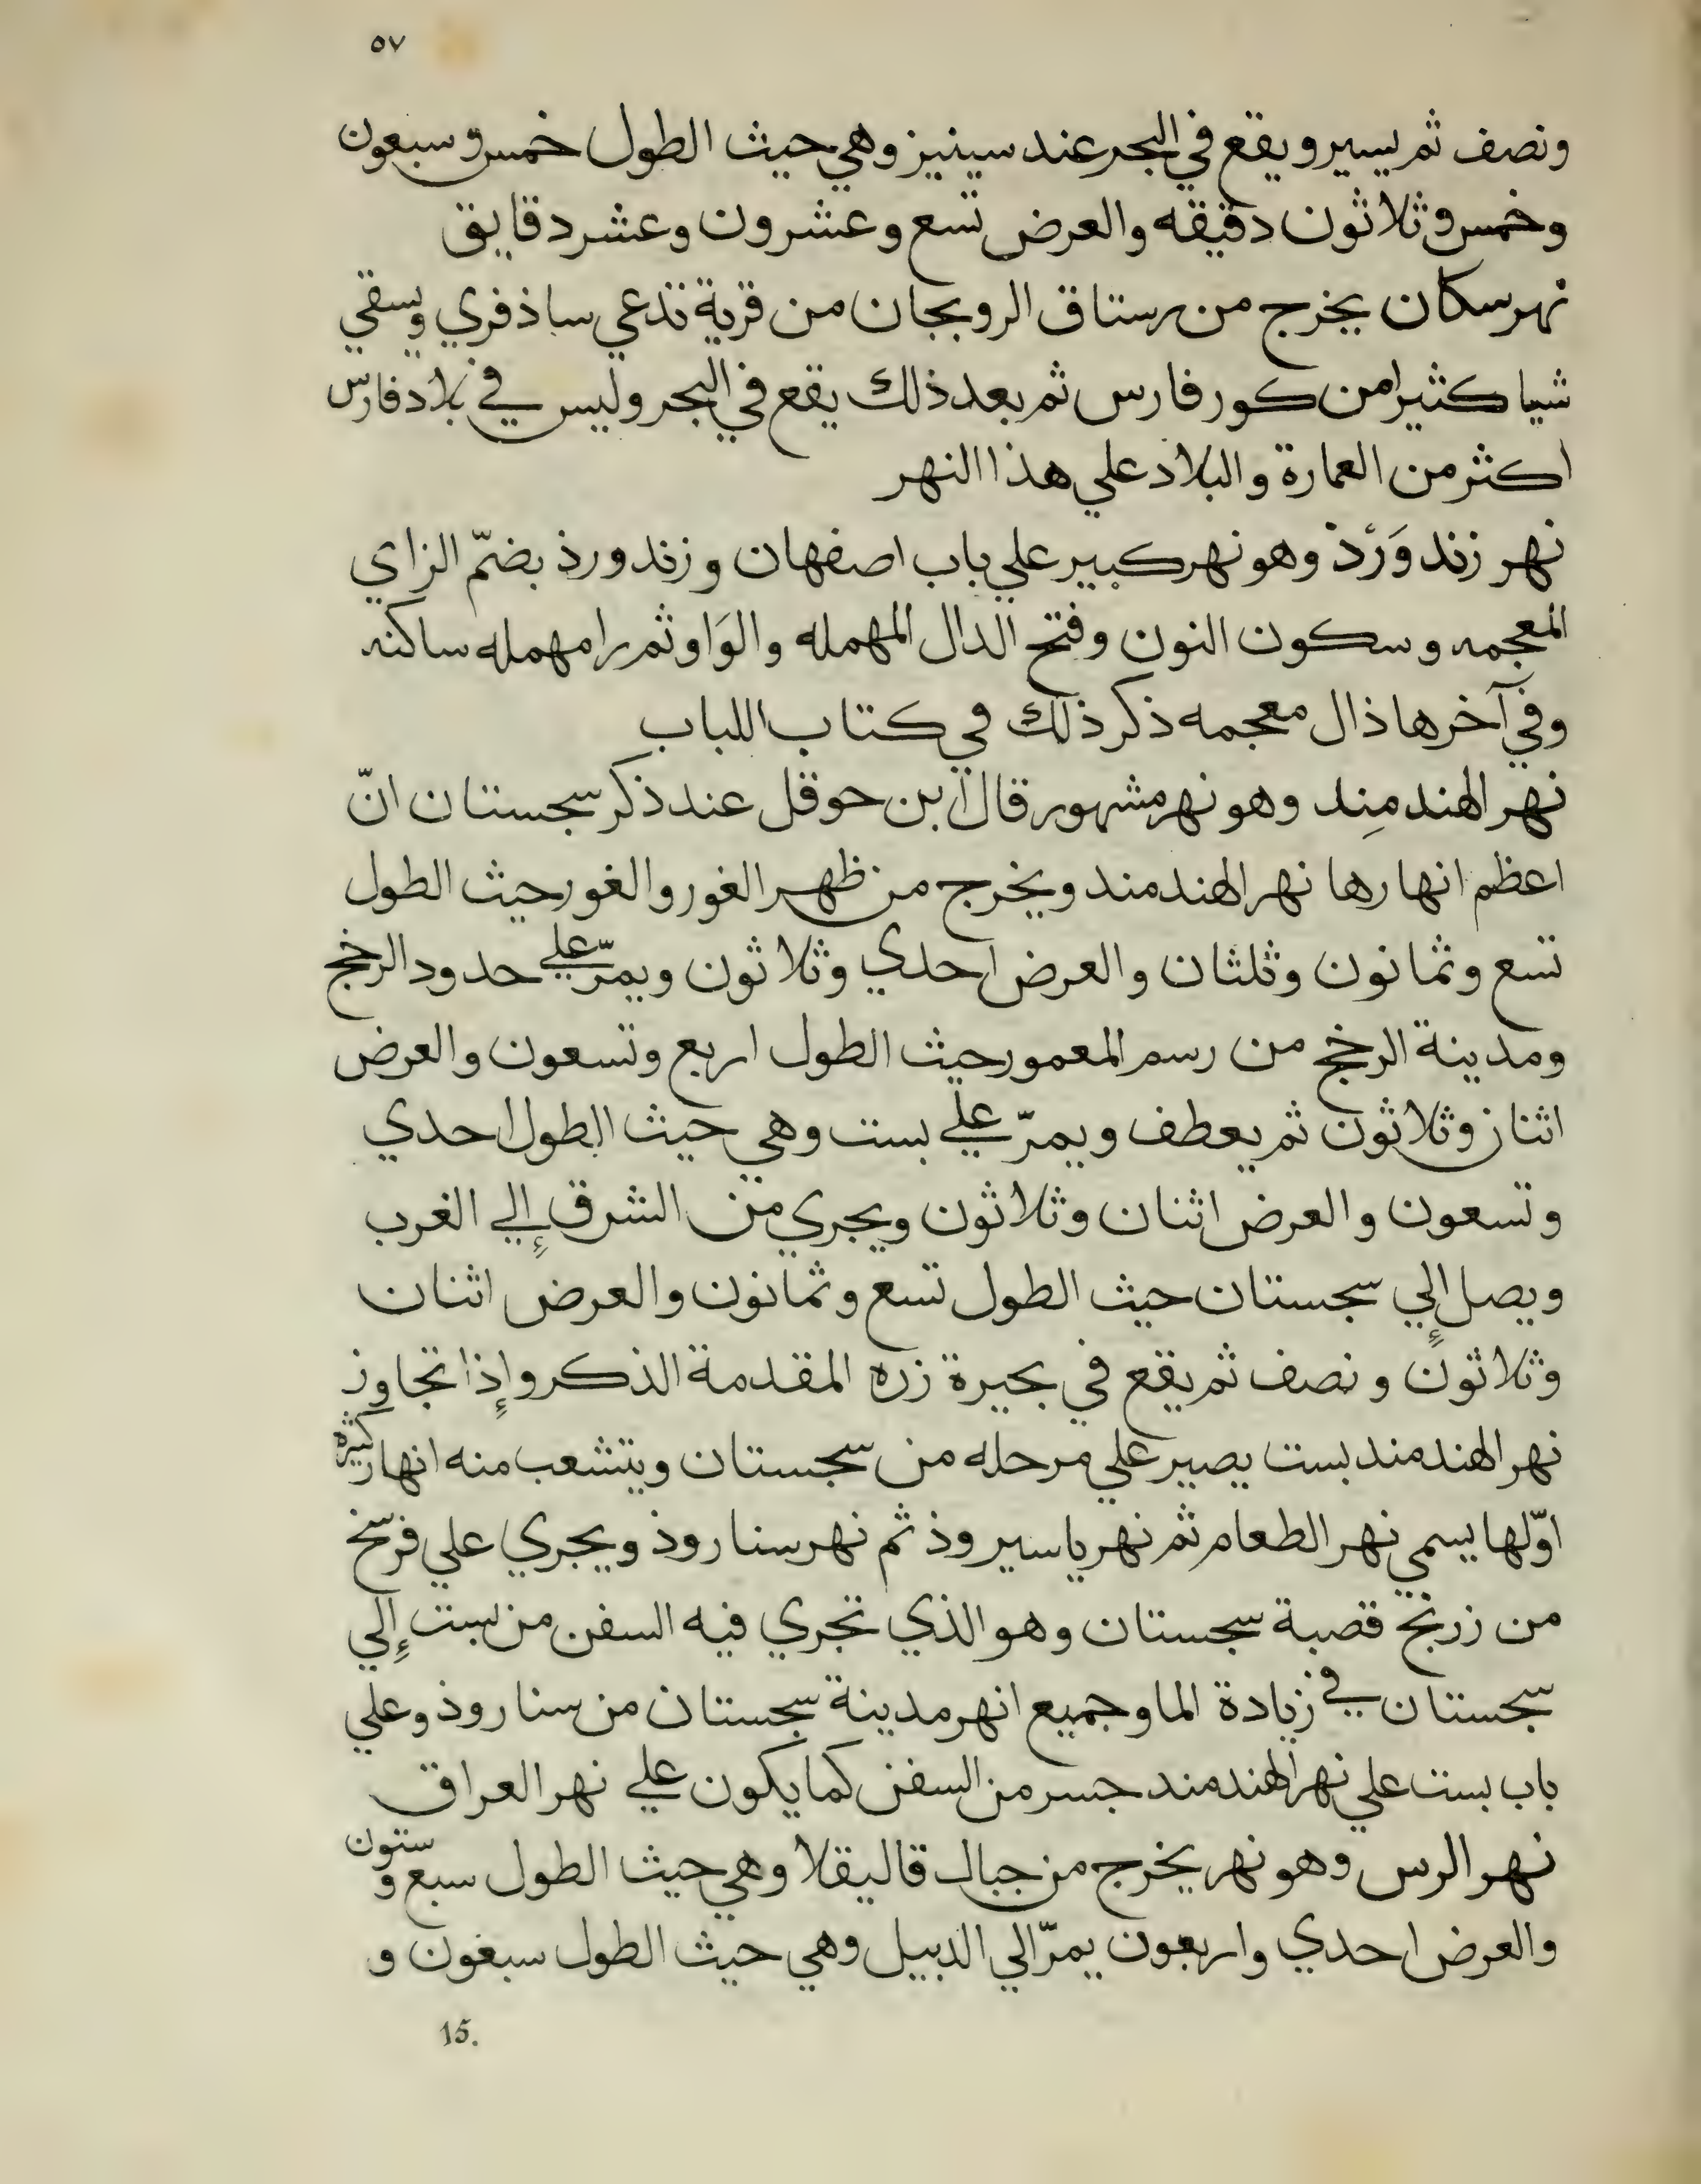 ٥٧
ونصف ثم يسير ويقع في البحر عند سينيز وهي حيث الطول خمس وسبعون
وخمس وثلاثون دقيقه والعرض تسع وعشرون وعشر دقايق
نهر سكان يخرج من رستاق الرويجان من قرية تدعي ساذفري ويسقي
شيا كثيرا من كور فارس ثم بعد ذلك يقع في البحر وليس في بلاد فارس
اكثر من العمارة والبلاد علي هذا النهر
نهر زندوَرْذ وهو نهر كبير علي باب اصفهان وزندورذ بضمّ الزاي
المعجمه وسكون النون وفتح الدال المهمله والوَاو ثم را مهمله ساكنه
وفي آخرها ذال معجمه ذكر ذلك في كتاب اللباب
نهر الهندمِند وهو نهر مشهور قال ابن حوقل عند ذكر سجستان انّ
اعظم انهارها نهر الهندمند ويخرج من ظهر الغور والغور حيث الطول
تسع وثمانون وثلثان والعرض احدي وثلاثون ويمرّ علي حدود الرخج
ومدينة الرخج من رسم المعمور حيث الطول اربع وتسعون والعرض
اثنان وثلاثون ثم يعطف ويمرّ علي بست وهي حيث الطول احدي
وتسعون والعرض اثنان وثلاثون ويجري من الشرق إلي الغرب
ويصل إلي سجستان حيث الطول تسع وثمانون والعرض اثنان
وثلاثون ونصف ثم يقع في بحيرة زره المقدمة الذكر وإذا تجاوز
نهر الهندمند بست يصير علي مرحله من سجستان ويتشعب منه انهار كثيرة
اوّلها يسمي نهر الطعام ثم نهر ياسيروذ ثم نهر سناروذ ويجري علي فرسخ
من زرنج قصبة سجستان وهو الذي تجري فيه السفن من بست إلي
سجستان في زيادة الما وجميع انهر مدينة سجستان من سناروذ وعلي
باب بست علي نهر الهندمند جسر من السفن كما يكون علي نهر العراق
نهر الرس وهو نهر يخرج من جبال قاليقلا وهي حيث الطول سبع وستون
والعرض احدي واربعون يمرّ الي الدبيل وهي حيث الطول سبعون و
15.